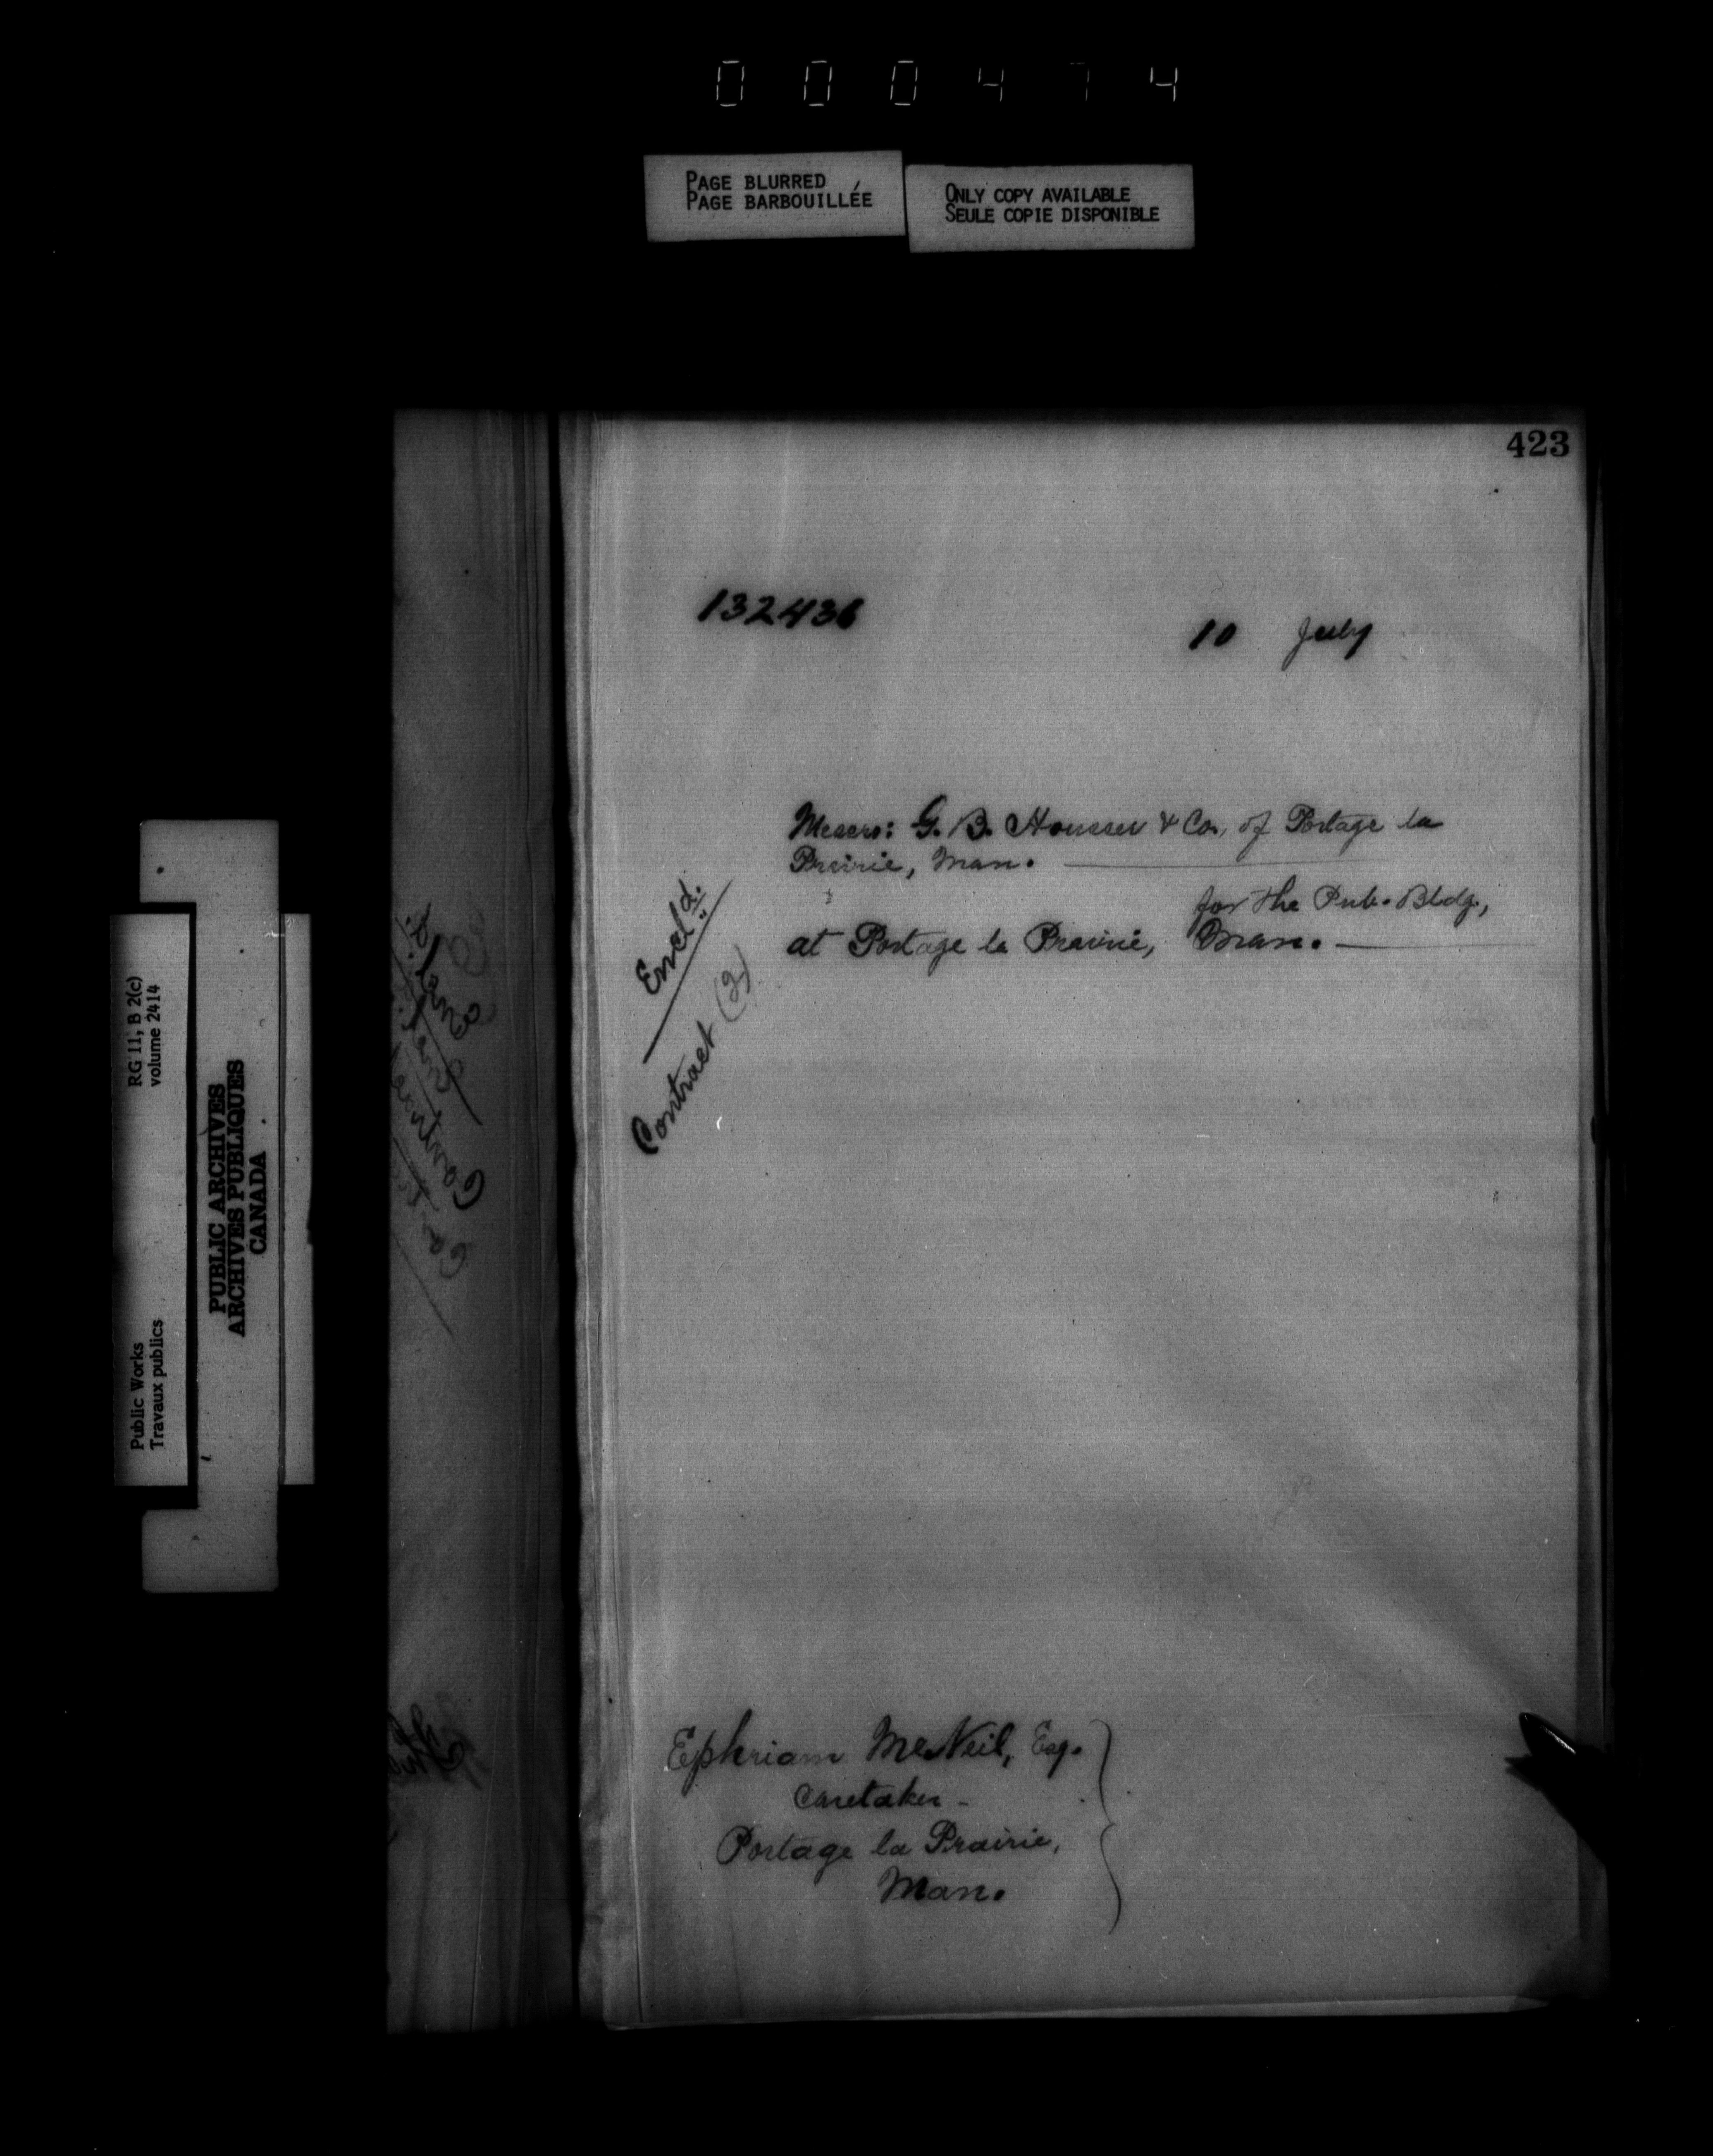 000474
PAGE BLURRED
PAGE BARBOUILLÉE
ONLY COPY AVAILABLE
SEULE COPIE DISPONIBLE
423
132436
10 July
Messrs: G. B. Housser & Co., of Portage la
Prairie, Man.
for the Pub. Bldg.,
at Portage la Prairie, Man.
Encld.
Contract (2)
Ephriam McNeil, Esq.
Caretaker -
Portage la Prairie,
Man.
RG 11, B 2(c)
volume 2414
Public Works
Travaux publics
PUBLIC ARCHIVES
ARCHIVES PUBLIQUES
CANADA